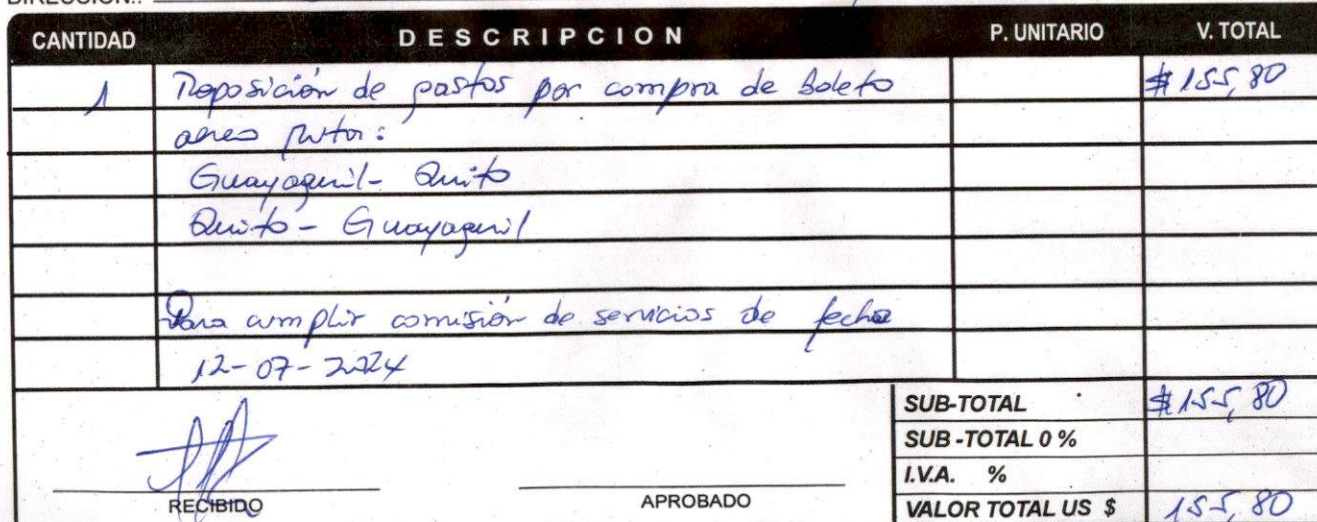 DIRECCION.:
CANTIDAD DESCRIPCION P. UNITARIO V. TOTAL
1 Reposición de gastos por compra de boleto $155,80
aereo ruta:
Guayaquil - Quito
Quito - Guayaquil
Para cumplir comisión de servicios de fecha
12-07-2024
SUB-TOTAL $155,80
SUB-TOTAL 0 %
I.V.A. %
RECIBIDO APROBADO VALOR TOTAL US $ 155,80